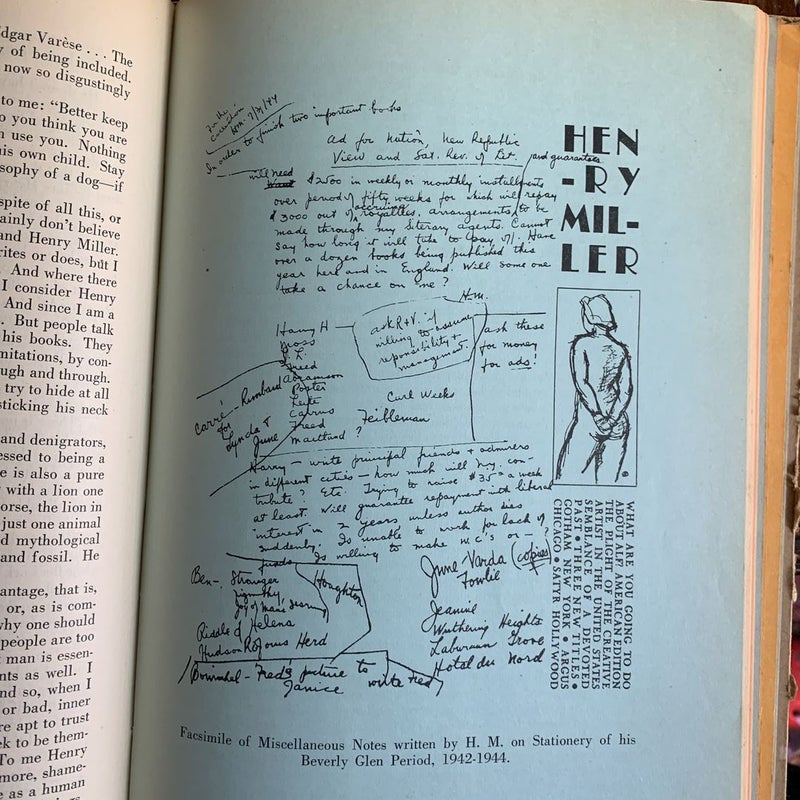 Edgar Varèse . . . The
y of being included.
now so disgustingly
to me: "Better keep
o you think you are
n use you. Nothing
is own child. Stay
osophy of a dog—if
spite of all this, or
ainly don't believe
and Henry Miller.
rites or does, but I
And where there
I consider Henry
And since I am a
. But people talk
his books. They
mitations, by con-
ough and through.
try to hide at all
sticking his neck
and denigrators,
essed to being a
e is also a pure
with a lion one
orse, the lion in
just one animal
d mythological
and fossil. He
antage, that is,
or, as is com-
why one should
people are too
man is essen-
nts as well. I
nd so, when I
or bad, inner
re apt to trust
ek to be them-
To me Henry
more, shame-
e as a human
For the
Collection
H.M.
In order to finish two important books
Ad for Nation, New Republic
View and Sat. Rev. of Lit.
— will need $2500 in weekly or monthly installments and guarantee
over period of fifty weeks for which will repay
$3000 out of accruing royalties. arrangements to be
made through my literary agents. Cannot
say how long it will take to pay off. Have
over a dozen books being published this
year here and in England. Will some one
take a chance on me?
H.M.
HEN
-RY
MIL-
LER
Harry H
Moss
Freed
Abramson
Porter
Leite
Cairns
Freed
Maitland ?
ask R+V. if
willing to assume
reponsibility +
management.
ask these
for money
for ads!
Carré - Rimbaud
for
Lynda &
June
Curl Weeks
Feibleman
Harry — write principal friends & admirers
in different cities — how much will they con-
tribute? Etc. Trying to raise $35 a week
at least. Will guarantee repayment with liberal
interest in 2 years unless author dies
suddenly. Is unable to work for lack of
funds. Is willing to make W.C's or — ?
Ben - Stranger
Joy of Man's Desiring
Riddle of Helena
Hudson Rejoins Herd
Houghton
June Varda (copies)
Fowlie
Jeanne
Wuthering Heights
Laburnum Grove
Hotel du Nord
- Fred's picture to
Janice
write Fred
WHAT ARE YOU GOING TO DO
ABOUT ALF AMERICAN EDITION
THE PLIGHT OF THE CREATIVE
ARTIST IN THE UNITED STATES
SEMBLANCE OF A DEVOTED
PAST • THREE NEW TITLES •
GOTHAM NEW YORK • ARGUS
CHICAGO • SATYR HOLLYWOOD
Facsimile of Miscellaneous Notes written by H. M. on Stationery of his
Beverly Glen Period, 1942-1944.